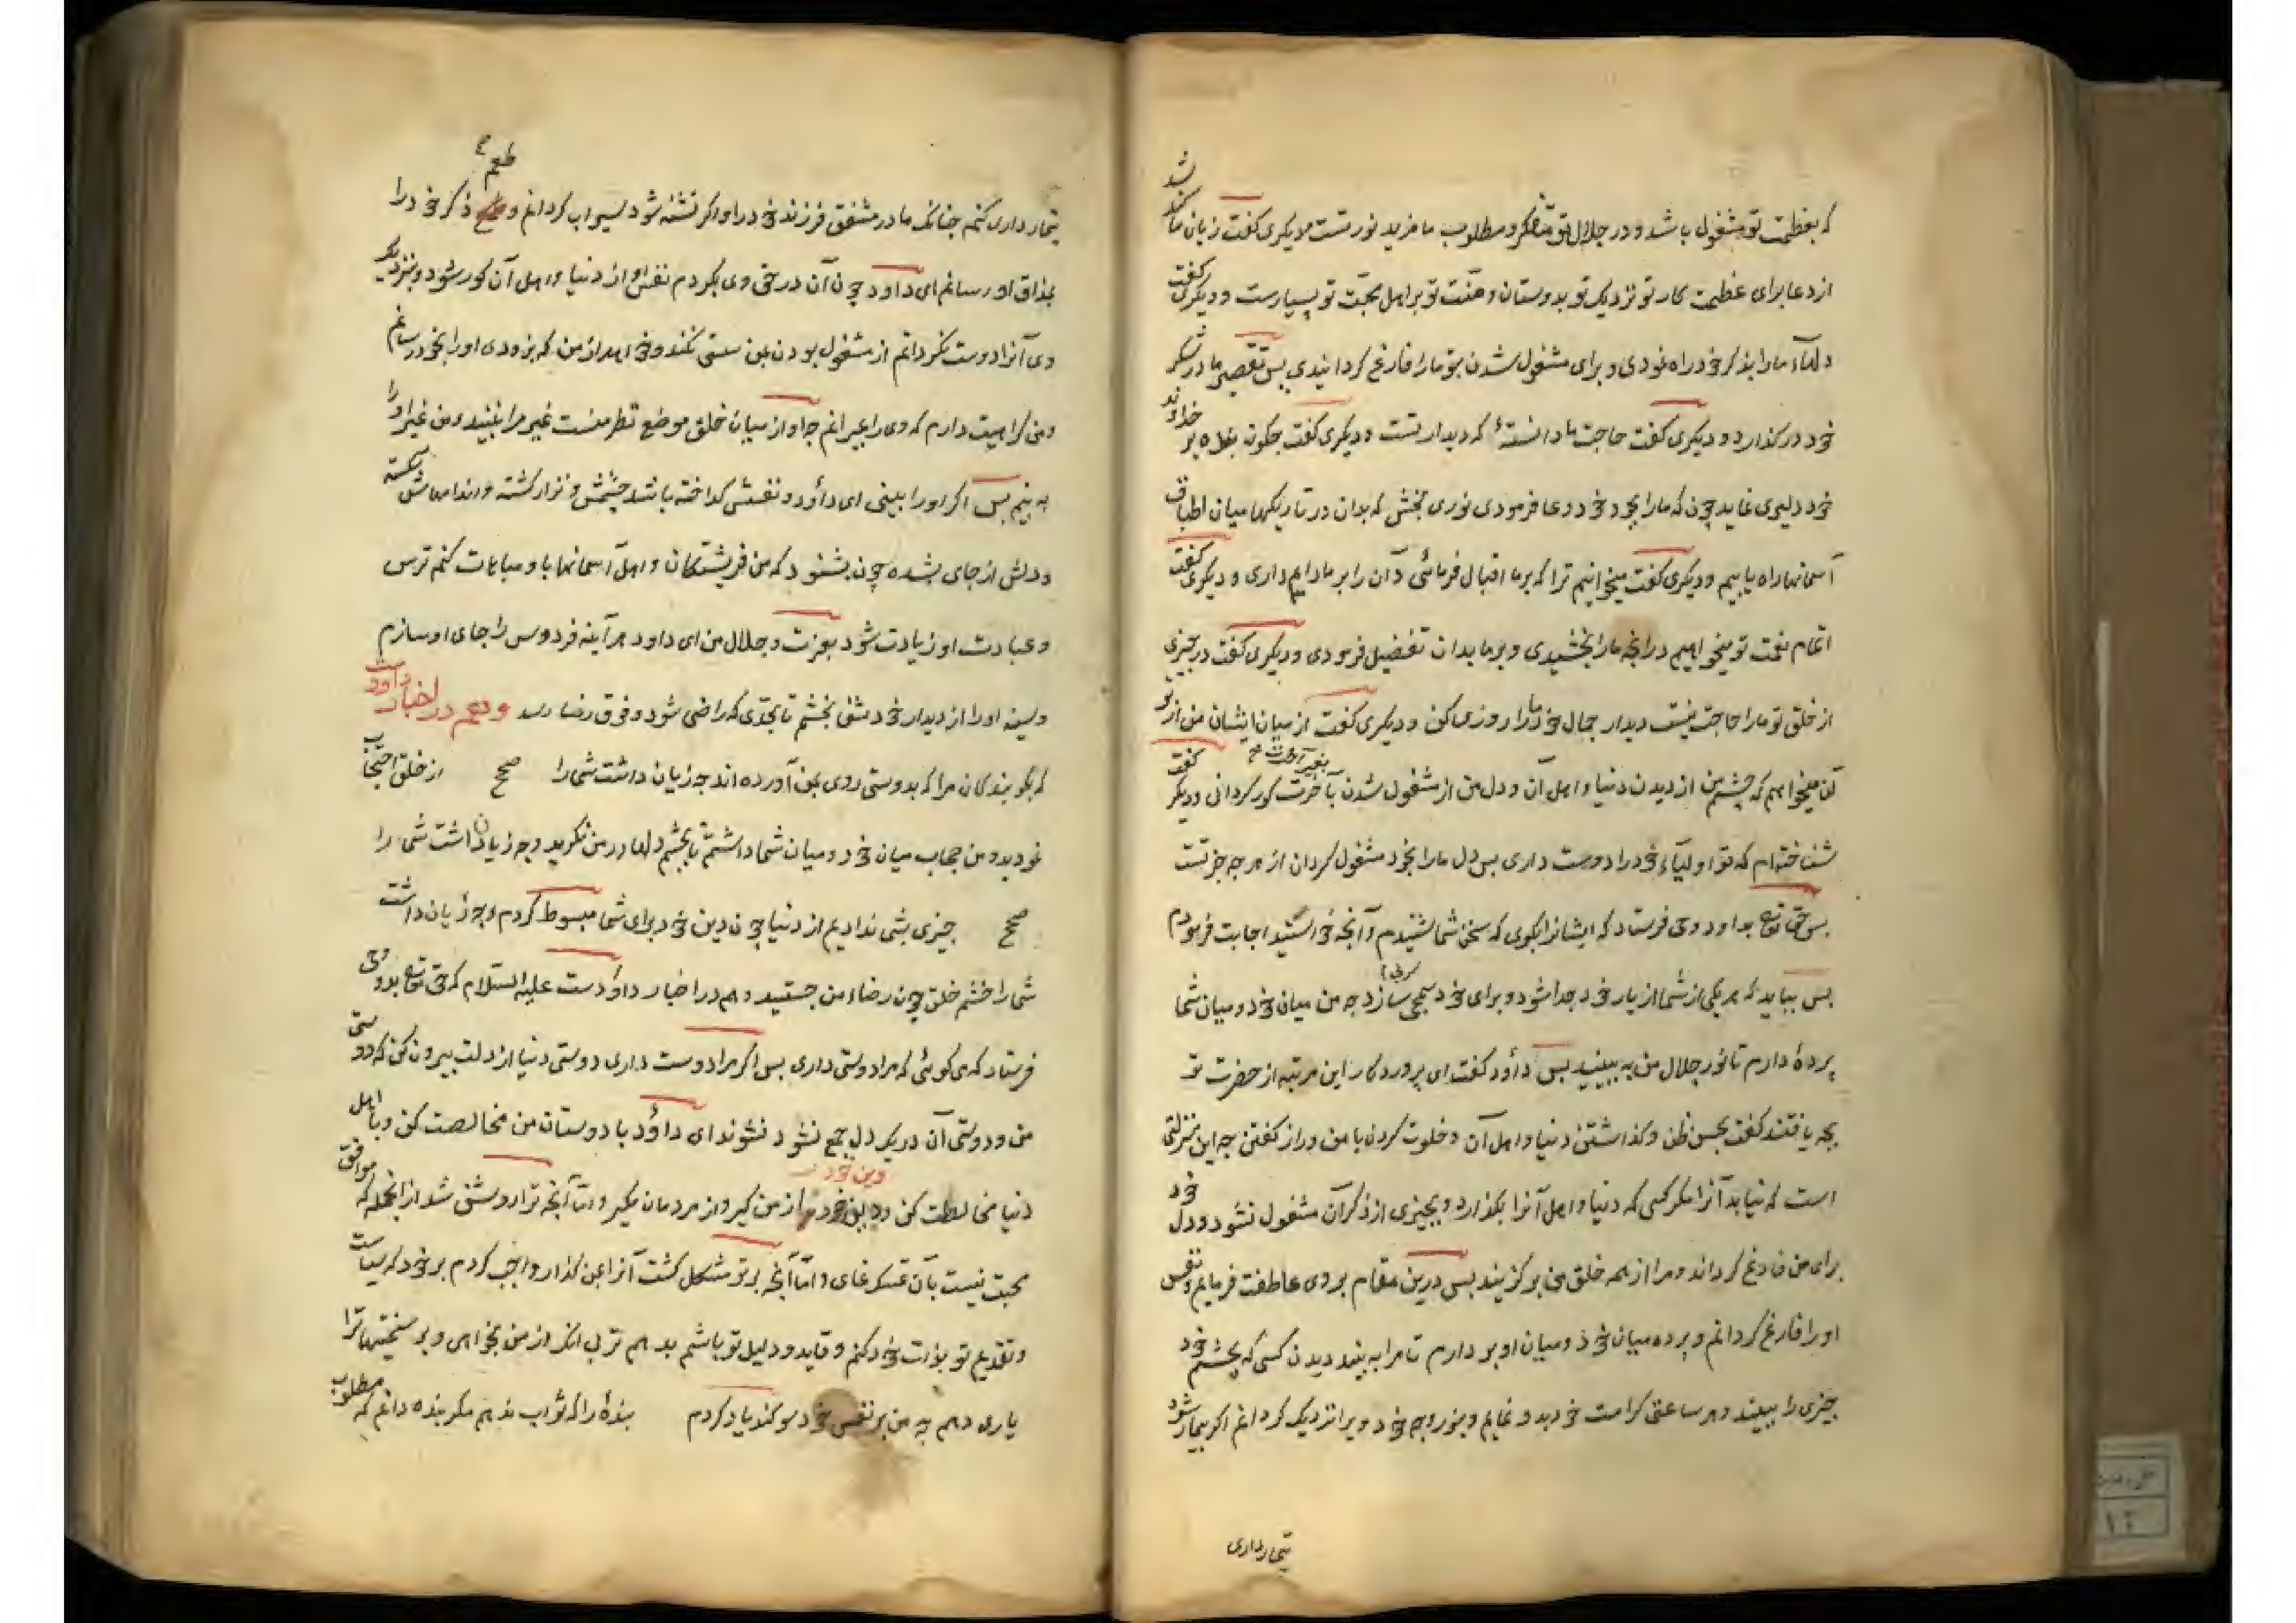 که بعظمت تو مشغول باشد و در جلال تو متفکر و مطلوب ما مزید نور تست و دیکری کفت زبان ما کند شد
از دعا برای عظمت کار تو نزدیک تو بدوستان و منّت تو بر اهل محبّت تو بسیارست و دیکری کفت
دلهاء ما را بذکر خود راه نمودی و برای مشغول شدن بتو ما را فارغ کردانیدی پس تقصیر ما در شکر
خود در کذار و دیکری کفت حاجت ما دانستهٔ که دیدار تست و دیکری کفت چکونه بنده بر خداوند
خود دلیری نماید چون که ما را بجود خود دعا فرمودی نوری بخش که بدان در تاریکیها میان اطباق
آسمانها راه یابیم و دیکری کفت میخوانیم ترا که بر ما اقبال فرمائی و آن را بر ما دایم داری و دیکری کفت
اتمام نعمت تو میخواهیم در انچه ما را بخشیدی و بر ما بدان تفضیل فرمودی و دیکری کفت در چیزی
از خلق تو ما را حاجت نیست دیدار جمال خود ما را روزی کن و دیکری کفت از میان ایشان من از تو
آن میخواهم که چشم من از دیدن دنیا و اهل آن و دل من از مشغول شدن بغیر آخرت بآخرت کور کردانی و دیکر کفت
شناخته‌ام که تو اولیاء خود را دوست داری پس دل ما را بخود مشغول کردان از هر چه جز تست
پس حق تع بداود وحی فرستاد که ایشانرا بکوی که سخن شما شنیدم و آنچه خواستید اجابت فرمودم
پس بباید که هر یکی از شما از یار خود جدا شود و برای خود سمجی سازد چه من میان خود و میان شما
پردهٔ دارم تا نور جلال من به بینید پس داود کفت ای پروردکار این مرتبه از حضرت تو
بچه یافتند کفت بحسن ظن و کذاشتن دنیا و اهل آن و خلوت کردن با من و راز کفتن چه این منزلتی
است که نیابد آنرا مکر کسی که دنیا و اهل آنرا بکذارد و بچیزی از ذکر آن مشغول نشود و دل خود
برای من فارغ کرداند و مرا از همه خلق من بر کزیند پس درین مقام بر وی عاطفت فرمایم و نفس
او را فارغ کردانم و پرده میان خود و میان او بر دارم تا مرا به بیند دیدن کسی که بچشم خود
چیزی را ببیند و هر ساعتی کرامت خود بدو نمایم و بنور وجه خود ویرا نزدیک کردانم اکر بیمار شود
تیمارداری
تیمار داری کنم چنانک مادر مشفق فرزند خود را و اکر تشنه شود سیراب کردانم و طعم ذکر خود را
بمذاق او رسانم ای داود چون آن در حق وی بکردم نفس او از دنیا و اهل آن کور شود و بنزدیک
وی آنرا دوست نکردانم از مشغول بودن بمن سستی نکند و خواهد از من که بزودی او را بخود رسانم
و من کراهیت دارم که وی را بمیرانم چه او از میان خلق موضع نظر منست غیر مرا نبیند و من غیر او را
به بینم پس اکر او را بینی ای داود و نفسش کداخته باشد چشمش و نزار کشته و اندامهاش شکسته
و دلش از جای بشده چون بشنود که من فریشتکان و اهل آسمانها باو مباهات کنم ترس
و عبادت او زیادت شود بعزت و جلال من ای داود هر آینه فردوس را جای او سازم
و سینه او را از دیدار خود شفا بخشم تا بحدّی که راضی شود و فوق رضا رسد و هم در اخبار داودست
که بکو بندکان مرا که بدوستی روی بمن آورده اند چه زیان داشت شما را صح از خلق احتجاب
نمودید و من حجاب میان خود و میان شما داشتم تا بچشم دلها در من نکرید و چه زیان داشت شما را
صح چیزی بشما ندادیم از دنیا چون دین خود برای شما مبسوط کردم و چه زیان داشت
شما را خشم خلق چون رضاء من جستید و هم در اخبار داودست علیه السّلام که حق تع بدو وحی
فرستاد که می کوئی که مرا دوستی داری پس اکر مرا دوست داری دوستی دنیا از دلت بیرون کن که دوستی
من و دوستی آن در یک دل جمع نشود نشوند ای داود با دوستان من مخالصت کن و با اهل
دنیا مخالطت کن و دین خود از من کیر و از مردمان مکیر و امّا آنچه ترا روشن شد از انچه که موافق
محبت نیست بآن تمسک نمای و امّا آنچه بر تو مشکل کشت آنرا بمن کذار واجب کردم بر خود که سیاست
و تقدیم تو بذات خود کنم و قاید و دلیل تو باشم بدهم ترا بی انک از من بخواهی و بر سختیها ترا
یاری دهم چه من بر نفس خود سوکند یاد کردم بندهٔ را که ثواب ندهم مکر بنده دانم که مطلوب